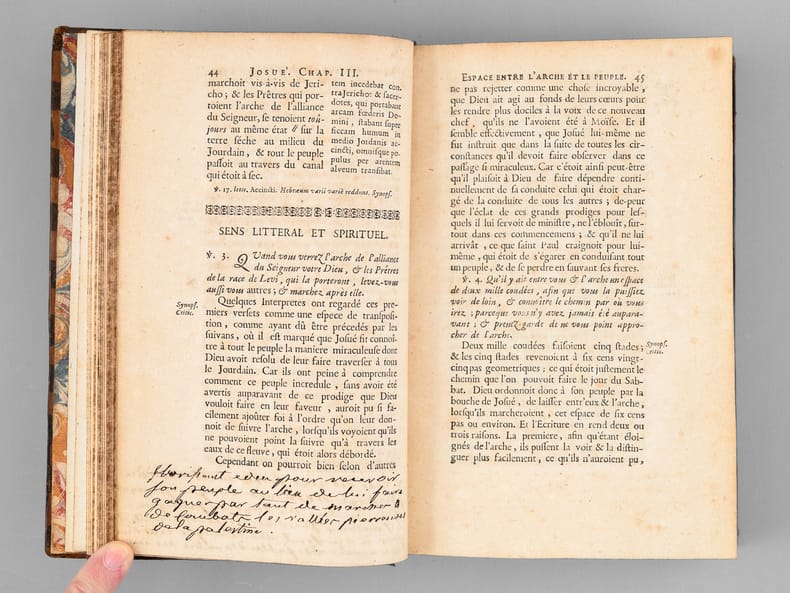 44 JOSUE'. CHAP. III.
marchoit vis-à-vis de Jeri-
cho; & les Prêtres qui por-
toient l'arche de l'alliance
du Seigneur, se tenoient toû-
jours au même état // sur la
terre séche au milieu du
Jourdain, & tout le peuple
passoit au travers du canal
qui étoit à sec.
tem incedebat con-
tra Jericho: & sacer-
dotes, qui portabant
arcam fœderis Do-
mini, stabant super
siccam humum in
medio Jordanis ac-
cincti, omnisque po-
pulus per arentem
alveum transibat.
℣. 17. lettr. Accincti. Hebræum variè reddunt. Synops.
SENS LITTERAL ET SPIRITUEL.
℣. 3. QUand vous verrez l'arche de l'alliance
du Seigneur votre Dieu, & les Prêtres
de la race de Levi, qui la porteront, levez-vous
aussi vous autres; & marchez après elle.
Synops.
Critic.
Quelques Interpretes ont regardé ces pre-
miers versets comme une espece de transposi-
tion, comme ayant dû être précédés par les
suivans, où il est marqué que Josué fit connoî-
tre à tout le peuple la maniere miraculeuse dont
Dieu avoit resolu de leur faire traverser à tous
le Jourdain. Car ils ont peine à comprendre
comment ce peuple incredule, sans avoir été
avertis auparavant de ce prodige que Dieu
vouloit faire en leur faveur, auroit pu si fa-
cilement ajoûter foi à l'ordre qu'on leur don-
noit de suivre l'arche, lorsqu'ils voyoient qu'ils
ne pouvoient point la suivre qu'à travers les
eaux de ce fleuve, qui étoit alors débordé.
Cependant on pourroit bien selon d'autres
pour recevoir
son peuple au lieu de lui faire
gagner par tant de marches &
de combats les vallées pierreuses
de la palestine.
ESPACE ENTRE L'ARCHE ET LE PEUPLE. 45
ne pas rejetter comme une chose incroyable,
que Dieu ait agi au fonds de leurs cœurs pour
les rendre plus dociles à la voix de ce nouveau
chef, qu'ils ne l'avoient été à Moïse. Et il
semble effectivement, que Josué lui-même ne
fut instruit que dans la suite de toutes les cir-
constances qu'il devoit faire observer dans ce
passage si miraculeux. Car c'étoit ainsi peut-être
qu'il plaisoit à Dieu de faire dépendre conti-
nuellement de sa conduite celui qui étoit char-
gé de la conduite de tous les autres; de-peur
que l'éclat de ces grands prodiges pour les-
quels il lui servoit de ministre, ne l'éblouît, sur-
tout dans ces commencemens; & qu'il ne lui
arrivât, ce que saint Paul craignoit pour lui-
même, qui étoit de s'égarer en conduisant tout
un peuple, & de se perdre en sauvant ses freres.
℣. 4. Qu'il y ait entre vous & l'arche un espace
de deux mille coudées, afin que vous la puissiez
voir de loin, & connoître le chemin par où vous
irez; parceque vous n'y avez jamais été aupara-
vant: & prenez-garde de ne vous point appro-
cher de l'arche.
Deux mille coudées faisoient cinq stades;
& les cinq stades revenoient à six cens vingt-
cinq pas geometriques: ce qui étoit justement le
chemin que l'on pouvoit faire le jour du Sab-
bat. Dieu ordonnoit donc à son peuple par la
bouche de Josué, de laisser entr'eux & l'arche,
lorsqu'ils marcheroient, cet espace de six cens
pas ou environ. Et l'Ecriture en rend deux ou
trois raisons. La premiere, afin qu'étant éloi-
gnés de l'arche, ils pussent la voir & la distin-
guer plus facilement, ce qu'ils n'auroient pu,
Synops.
Critic.